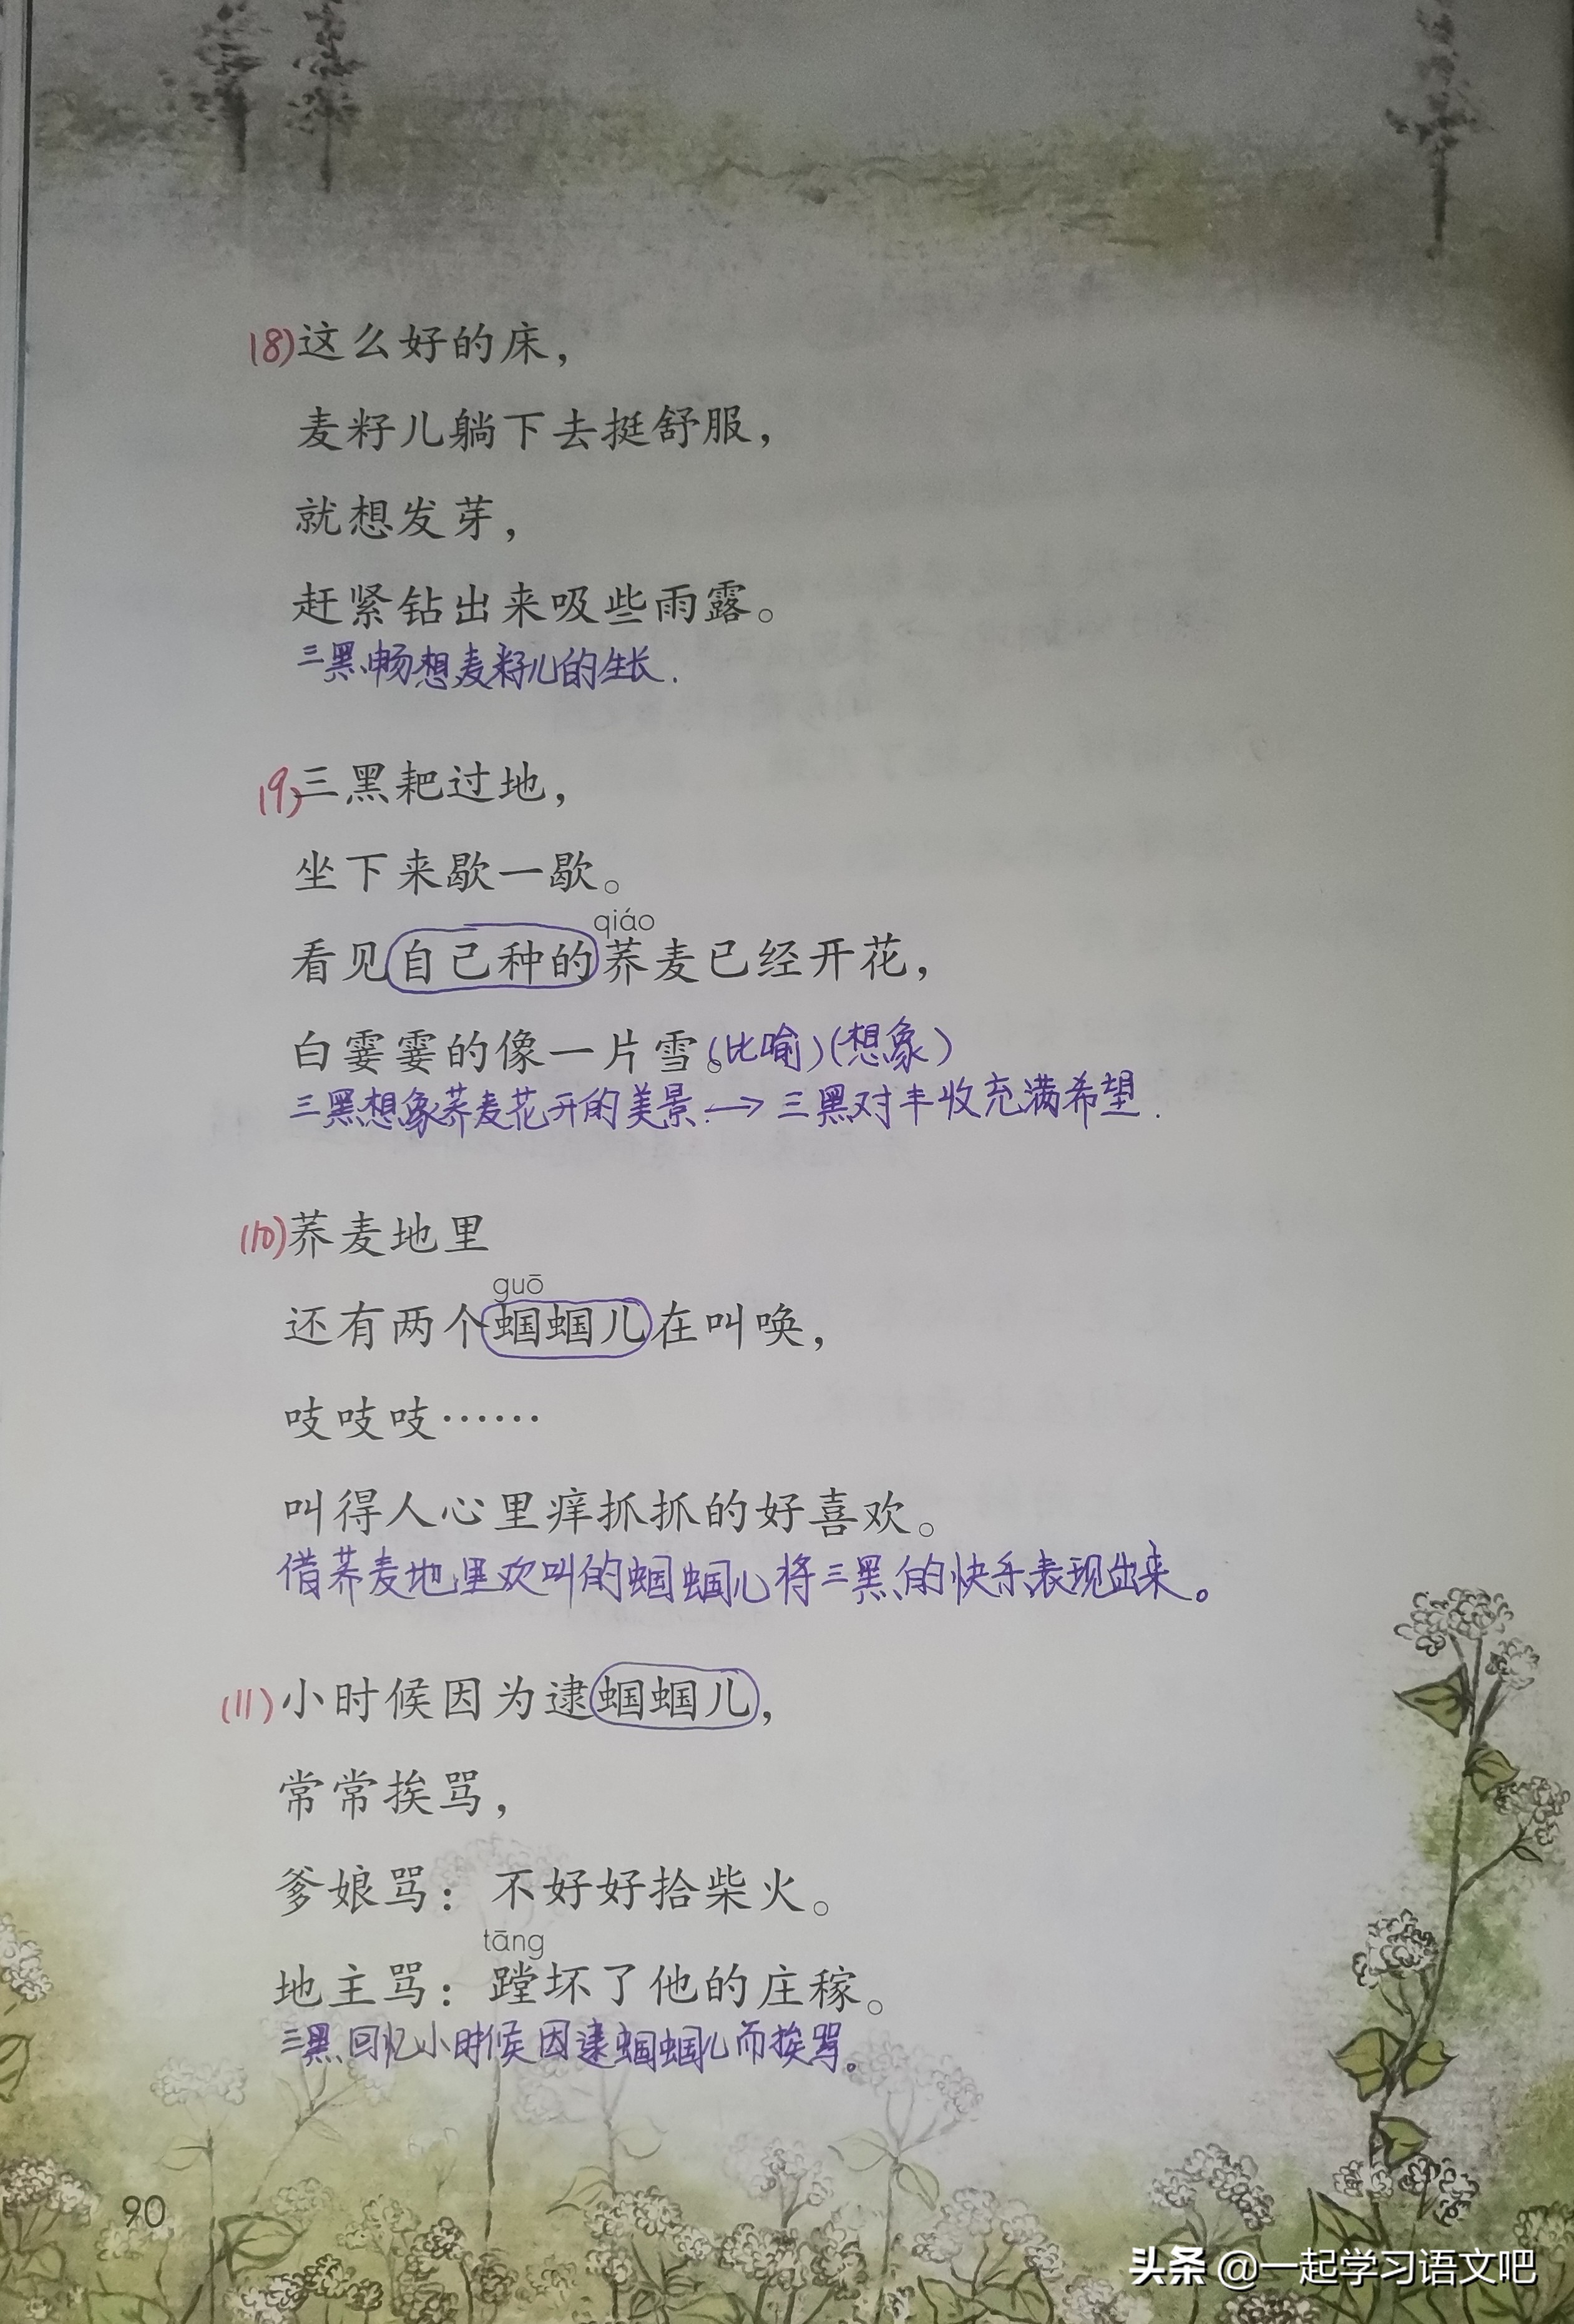 (8)这么好的床，
麦籽儿躺下去挺舒服，
就想发芽，
赶紧钻出来吸些雨露。
三黑畅想麦籽儿的生长.
(9)三黑耙过地，
坐下来歇一歇。
qiáo
看见自己种的荞麦已经开花，
白霎霎的像一片雪。(比喻)(想象)
三黑想象荞麦花开的美景.→三黑对丰收充满希望.
(10)荞麦地里
guō
还有两个蝈蝈儿在叫唤，
吱吱吱……
叫得人心里痒抓抓的好喜欢。
借荞麦地里欢叫的蝈蝈儿将三黑的快乐表现出来。
(11)小时候因为逮蝈蝈儿，
常常挨骂，
爹娘骂：不好好拾柴火。
tāng
地主骂：蹚坏了他的庄稼。
三黑回忆小时候因逮蝈蝈儿而挨骂。
90
头条 @一起学习语文吧